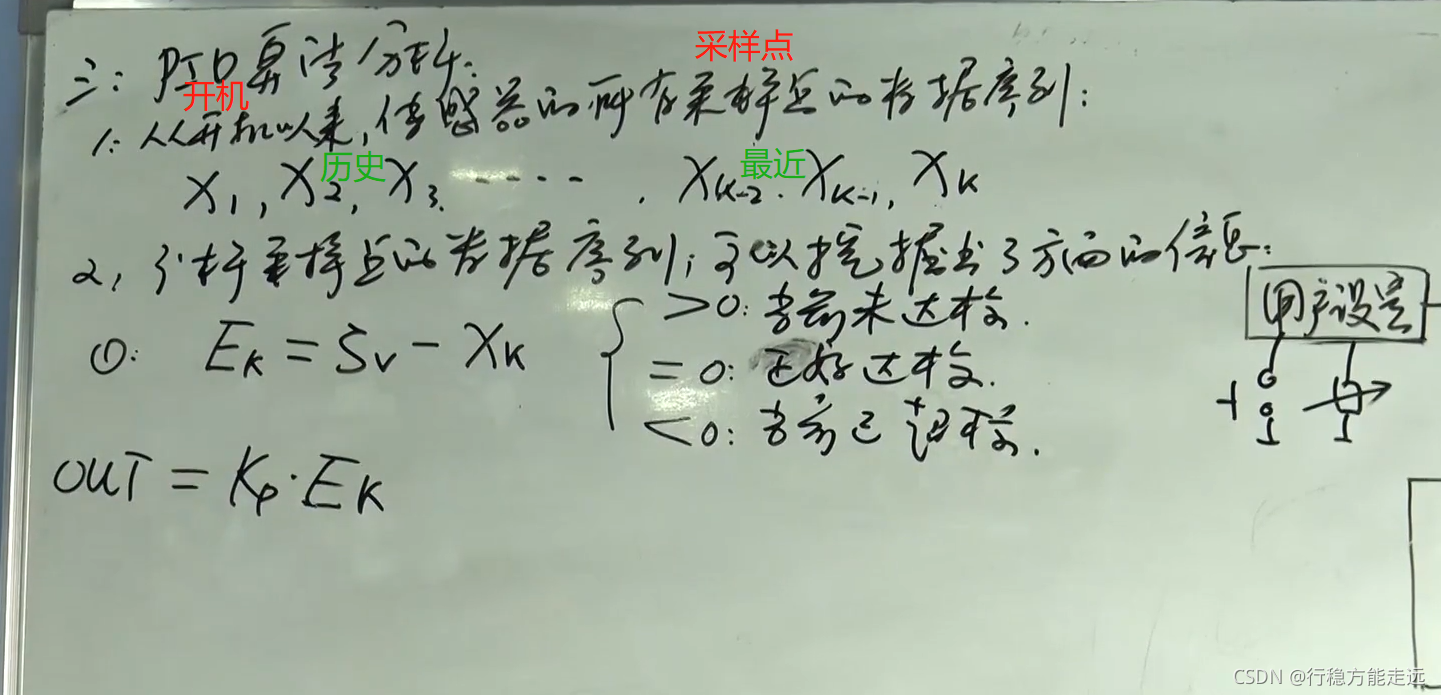 采样点
三: PID算法分析:
开机
1: 从开机以来,传感器的所有采样点的数据序列:
历史 最近
X1, X2, X3. ····· . XK-2. XK-1, XK
2, 分析采样点的数据序列;可以挖掘出3方面的信息:
用户设置
①: EK = SV - XK
>0: 当前未达标.
=0: 正好达标.
<0: 当前已超标.
OUT = KP·EK
CSDN @行稳方能走远